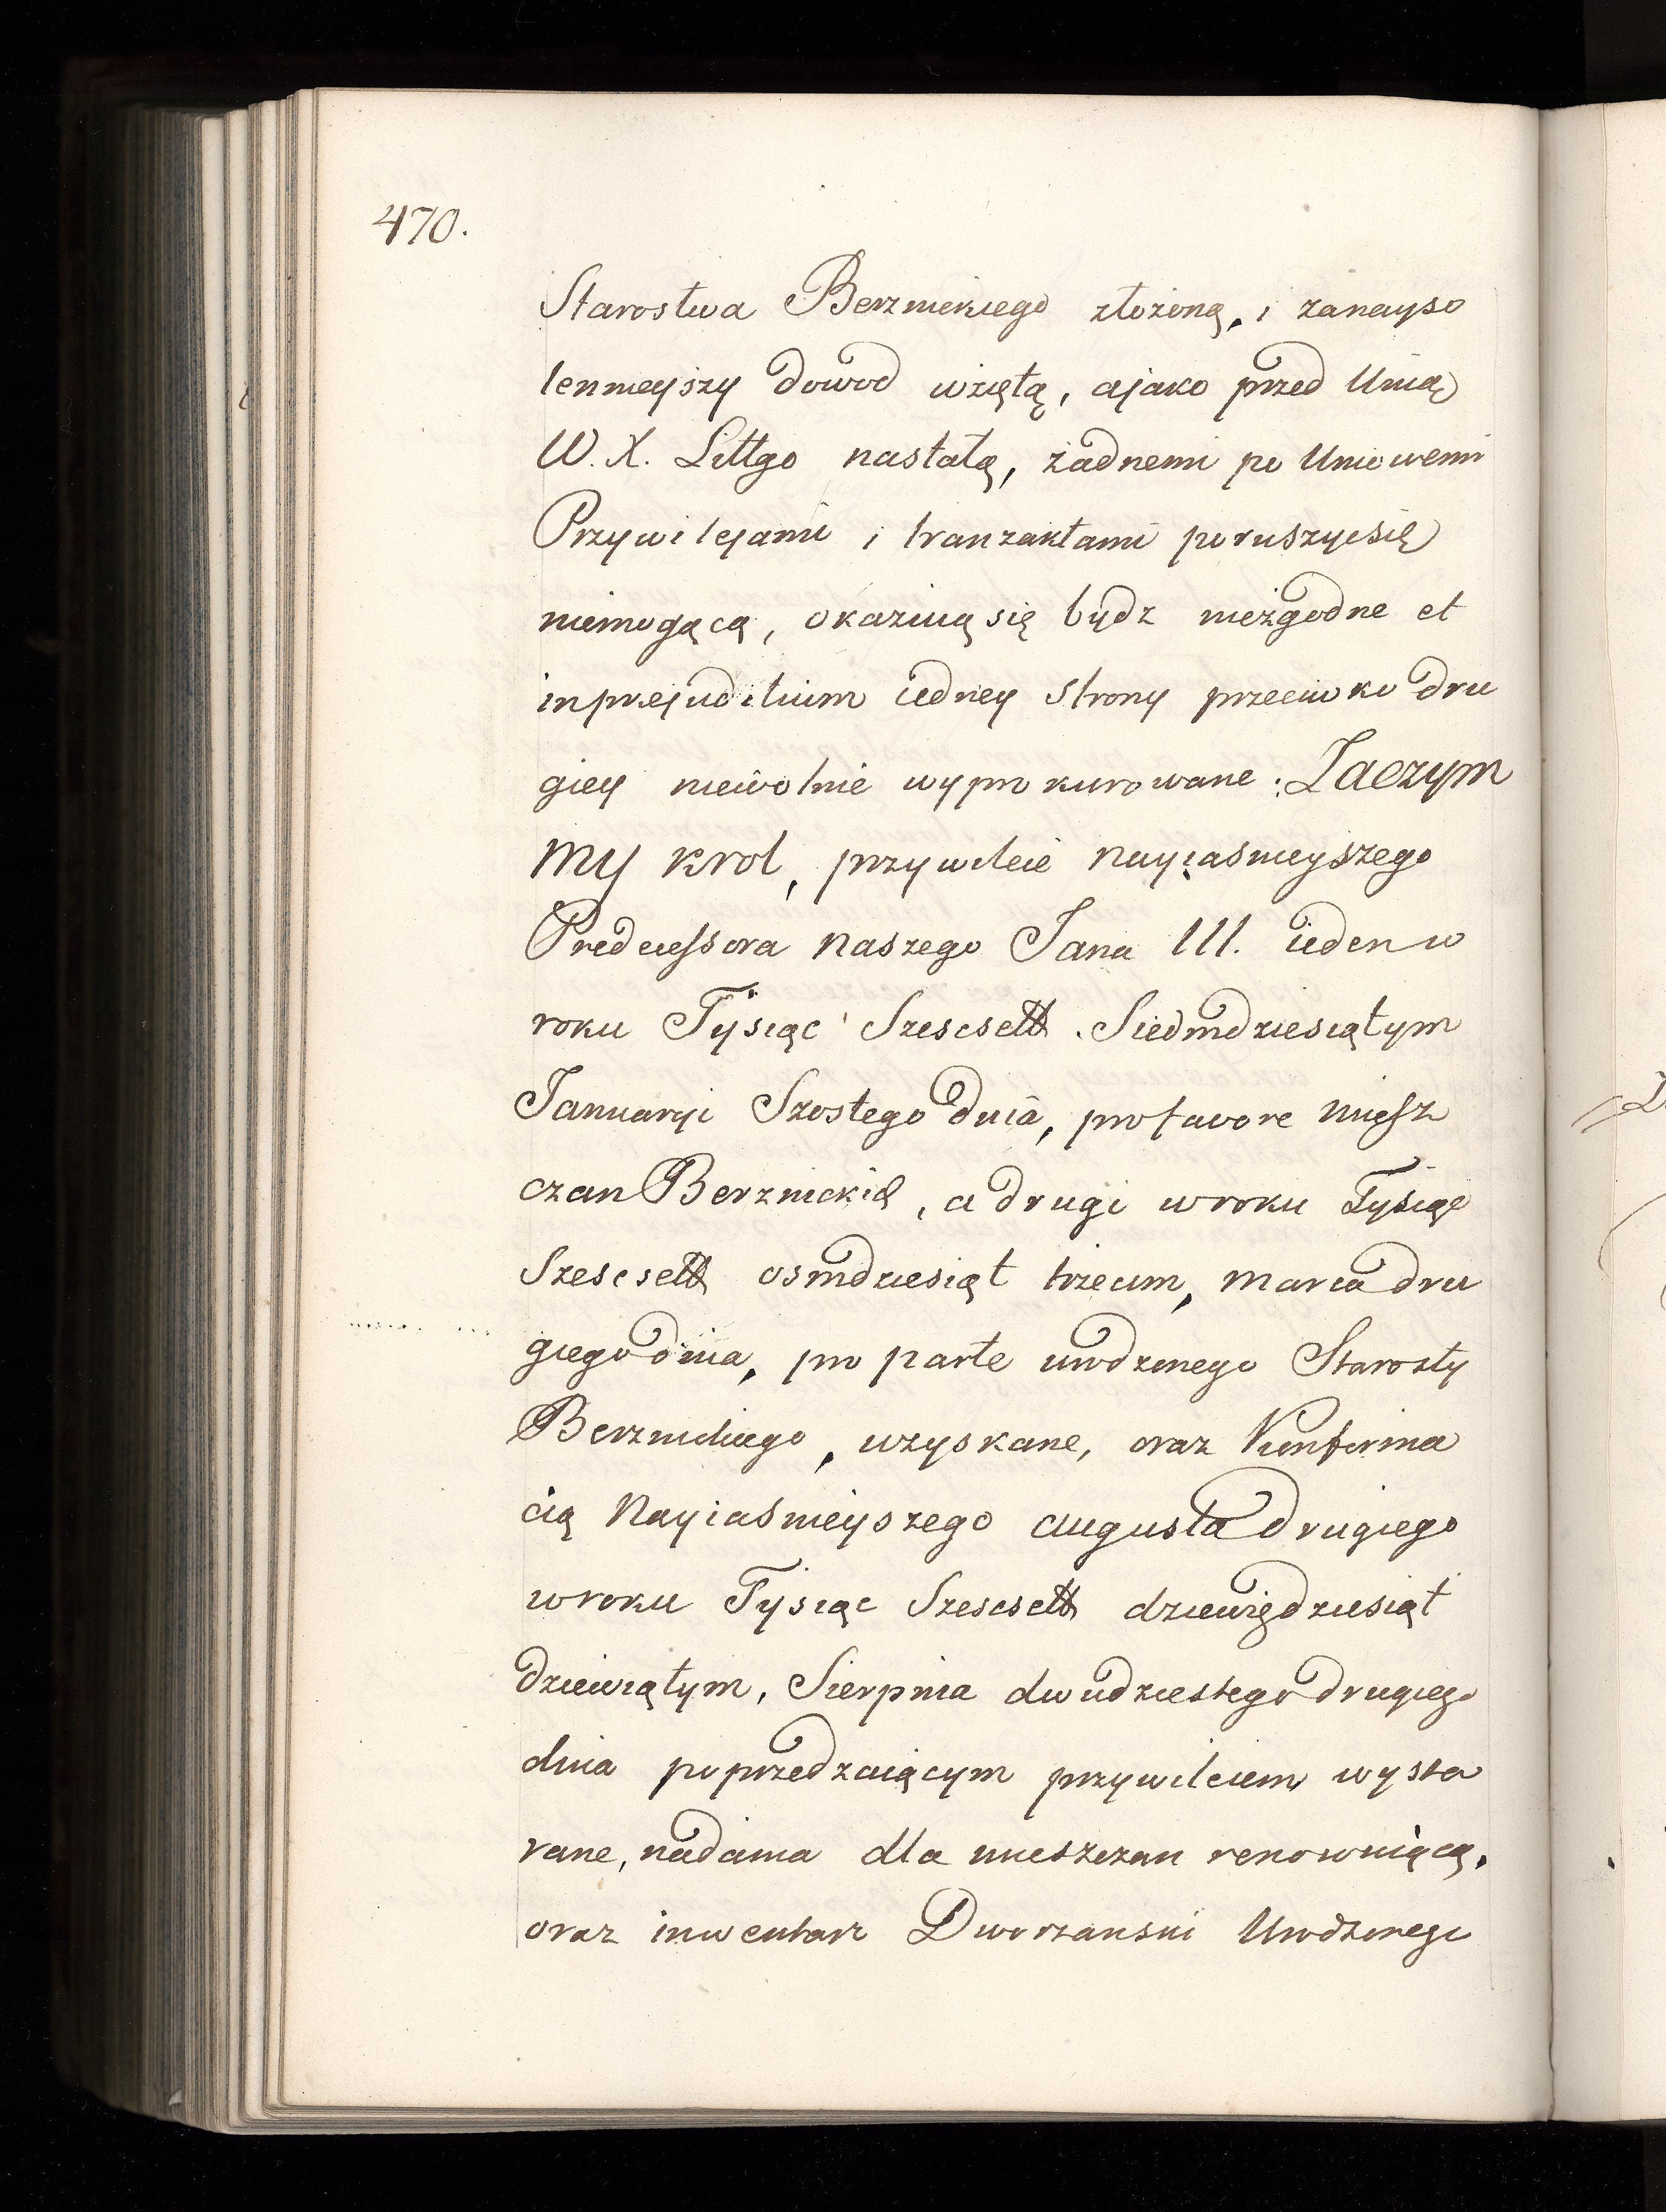 470.
Starostwa Berznickiego złożoną, i zanayso
lenneyszy dowod wziętą, ajako przed Unią
W. X. Littgo nastałą, żadnemi po Uniowemi
Przywilejami i tranzaktami poruszycsię
niemogącą, okazuią się bydz niezgodne et
inprejuditium iedney strony przeciwko dru
giey niewolnie wyprokurowane. Zaczym
My Krol, przywileie Nayiasnieyszego
Predecessora Naszego Jana III. ieden w
roku Tysiąc Szescsett Siedmdziesiątym
Januaryi Szostego dnia, pro favore miesz
czan Berznickich, a drugi wroku Tysiąc
Szescsett osmdziesiąt trzecim, marca dru
giego dnia, pro parte urodzonego Starosty
Berznickiego, uzyskane, oraz Konfirma
cią Nayiasnieyszego Augusta drugiego
wroku Tysiąc Szescsett dziewiędziesiąt
dziewiątym, Sierpnia dwudziestego drugiego
dnia poprzedzaiącym przywileiem wysta
rane, nadania dla mieszczan renowuiącą,
oraz inwentarz Dworzanski Urodzonego